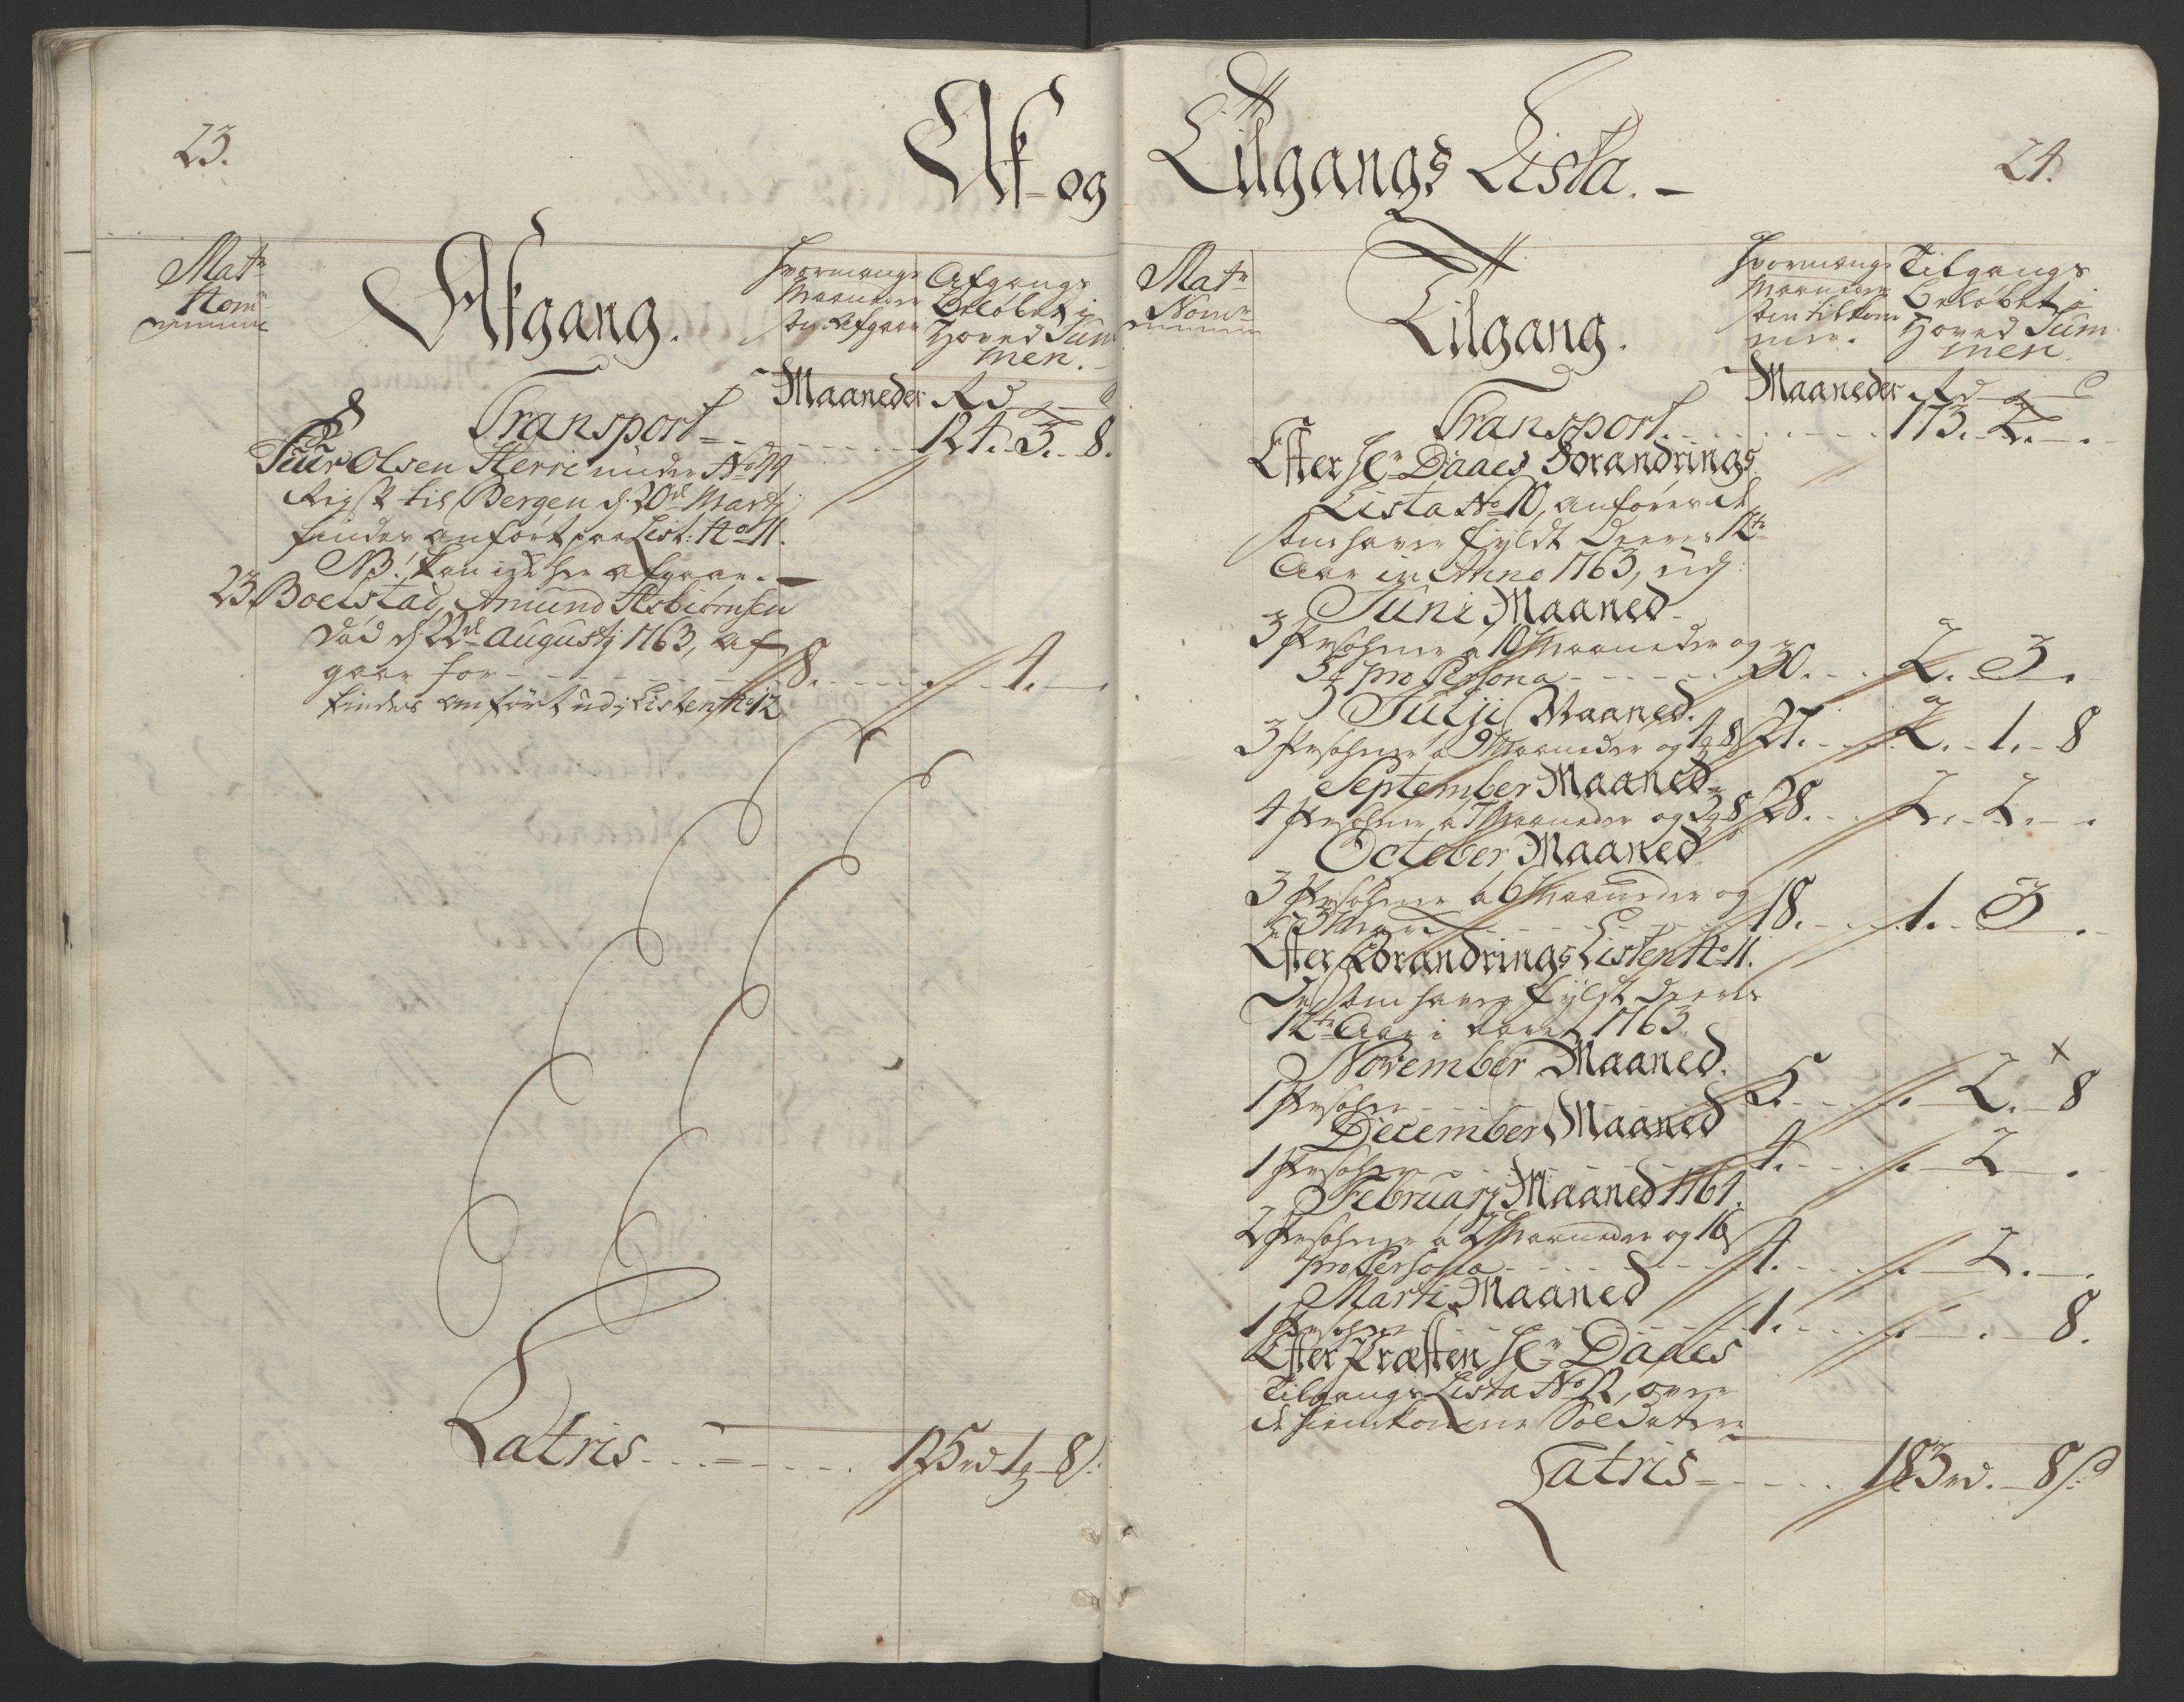 23.
Af- og
Matr
Nom
Afgang.
Hvormange
Maaneder
der Afgaar
Afgangs
Beløbet i
Hoved Sum
men.
Maaneder Rd
Transport 124. 3. 8.
Siur Olsen Herre under No 44
Reist til Bergen d. 20de Martj
findes anført paa List: No 11.
NB. kan icke her afgaae.
23 Boelstad, Amund Asbiørnsen
død d. 22de Augustj 1763, af
gaar for 8. 4.
findes anført udj Listen No 12
Latris 125 rd 1 8
Tilgangs Lista.
24.
Matr
Nomr
Tilgang.
Hvormange
Maaneder
som tilkom
mer.
Tilgangs
Beløbet i
Hoved Sum
men.
Maaneder Rd
Transport. 173. 2.
Efter Hr Daaes Forandrings
Lista No 10, anføres de
som haver fyldt Deres 12te
Aar in Anno 1763, udj
Juni Maaned
3 Persohner a 10 Maaneder og
3 pro Persona 30. 2. 3.
Julji Maaned.
3 Persohner a 9 Maaneder og 4 8 27. 2. 1. 8
September Maaned
4 Persohner a 7 Maaneder og 3 8 28. 2. 2.
October Maaned
3 Persohner a 6 Maaneder og
18. 1. 3
Efter Forandrings Listen No 11.
De som haver fyldt Deeres
12te Aar i Aaret 1763.
November Maaned.
1 Persohn 5 2. 8
December Maaned
1 Persohn 4. 2
Februarj Maaned 1764.
2 Persohner a 2 Maaneder og 16
pro Persona 4. 2.
Marti Maaned
1 Persohn 1. 8.
Efter Præsten Hr Daaes
Tilgangs Lista No 12, over
de hiemkomne Soldater
Latris 183 rd. 8